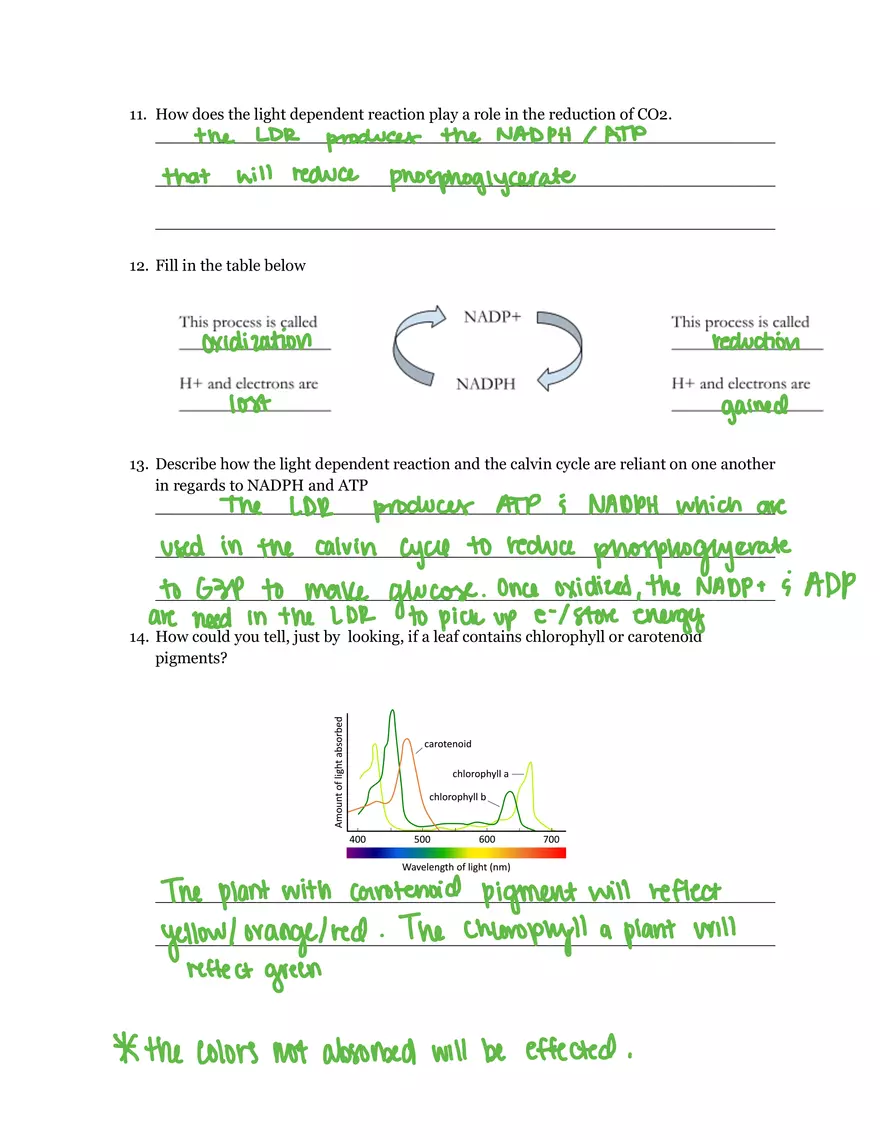 11. How does the light dependent reaction play a role in the reduction of CO2.
the LDR produces the NADPH / ATP
that will reduce phosphoglycerate
12. Fill in the table below
This process is called
oxidization
H+ and electrons are
lost
NADP+
NADPH
This process is called
reduction
H+ and electrons are
gained
13. Describe how the light dependent reaction and the calvin cycle are reliant on one another
in regards to NADPH and ATP
The LDR produces ATP & NADPH which are
used in the calvin cycle to reduce phosphoglycerate
to G3P to make glucose. Once oxidized, the NADP+ & ADP
are need in the LDR to pick up e-/store energy
14. How could you tell, just by looking, if a leaf contains chlorophyll or carotenoid
pigments?
Amount of light absorbed
carotenoid
chlorophyll a
chlorophyll b
400 500 600 700
Wavelength of light (nm)
The plant with carotenoid pigment will reflect
yellow/orange/red. The chlorophyll a plant will
reflect green
* the colors not absorbed will be effected.